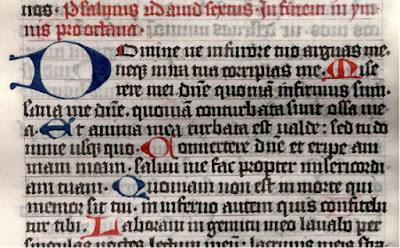 nos· Psalmus ı̄d auid sextus· In finem in ym
nis pro octaua·
Domine ne in furore tuo arguas me·
neq; in ira tua corripias me· Mise
rere mei dn̄e quoniā infirmus sum·
sana me dn̄e· quoniā conturbata sunt ossa me
a· Et anima mea turbata est ualde: sed tu do
mine usq; quo· Conuertere dn̄e et eripe ani
mam meam· saluū me fac propter misericordi
am tuam· Quoniam non est in morte qui
memor sit tui· in inferno autem quis confitebi
tur tibi· Laboraui in gemitu meo lauabo per
singulas noctes lectum meum· lacrimis meis stra